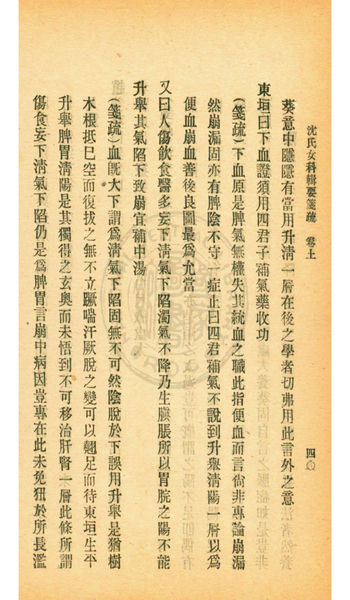 沈氏女科輯要箋疏　卷上
四〇
葵意中隱隱有當用升清一層在後之學者切弗用此言外之意
東垣曰下血證須用四君子補氣藥收功
(箋疏)下血原是脾氣無權失其統血之職此指便血而言尙非專論崩漏
然崩漏固亦有脾陰不守一症止曰四君補氣不說到升舉淸陽一層以爲
便血崩血善後良圖最爲允當
又曰人傷飲食醫多妄下淸氣下陷濁氣不降乃生䐜脹所以胃脘之陽不能
升舉其氣陷下致崩宜補中湯
(箋疏)血旣大下謂爲淸氣下陷固無不可然陰脫於下誤用升舉是猶樹
木根抵已空而復拔之無不立蹶喘汗厥脫之變可以翹足而待東垣生平
升舉脾胃淸陽是其獨得之玄奧而未悟到不可移治肝腎一層此條所謂
傷食妄下淸氣下陷仍是爲脾胃言崩中病因豈專在此未免狃於所長濫